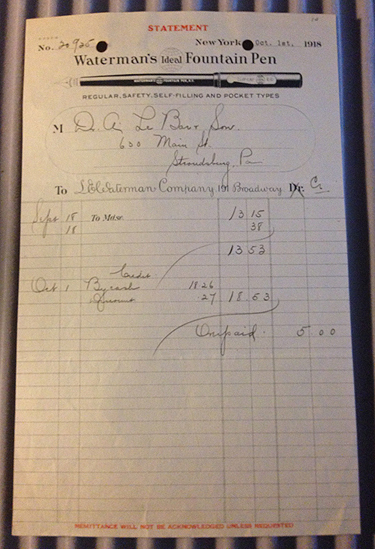 STATEMENT
No. 20925 New York Oct. 1st. 1918
Waterman's Ideal Fountain Pen
REGULAR, SAFETY, SELF-FILLING AND POCKET TYPES
M Le Bar & Son
630 Main St.
Stroudsburg, Pa
To L.E. Waterman Company 191 Broadway Dr. Cr.
Sept 18 To Mdse. 13 15
18 38
13 53
Credit
Oct 1 By cash 18 26
27 18 53
Overpaid 5 00
REMITTANCE WILL NOT BE ACKNOWLEDGED UNLESS REQUESTED